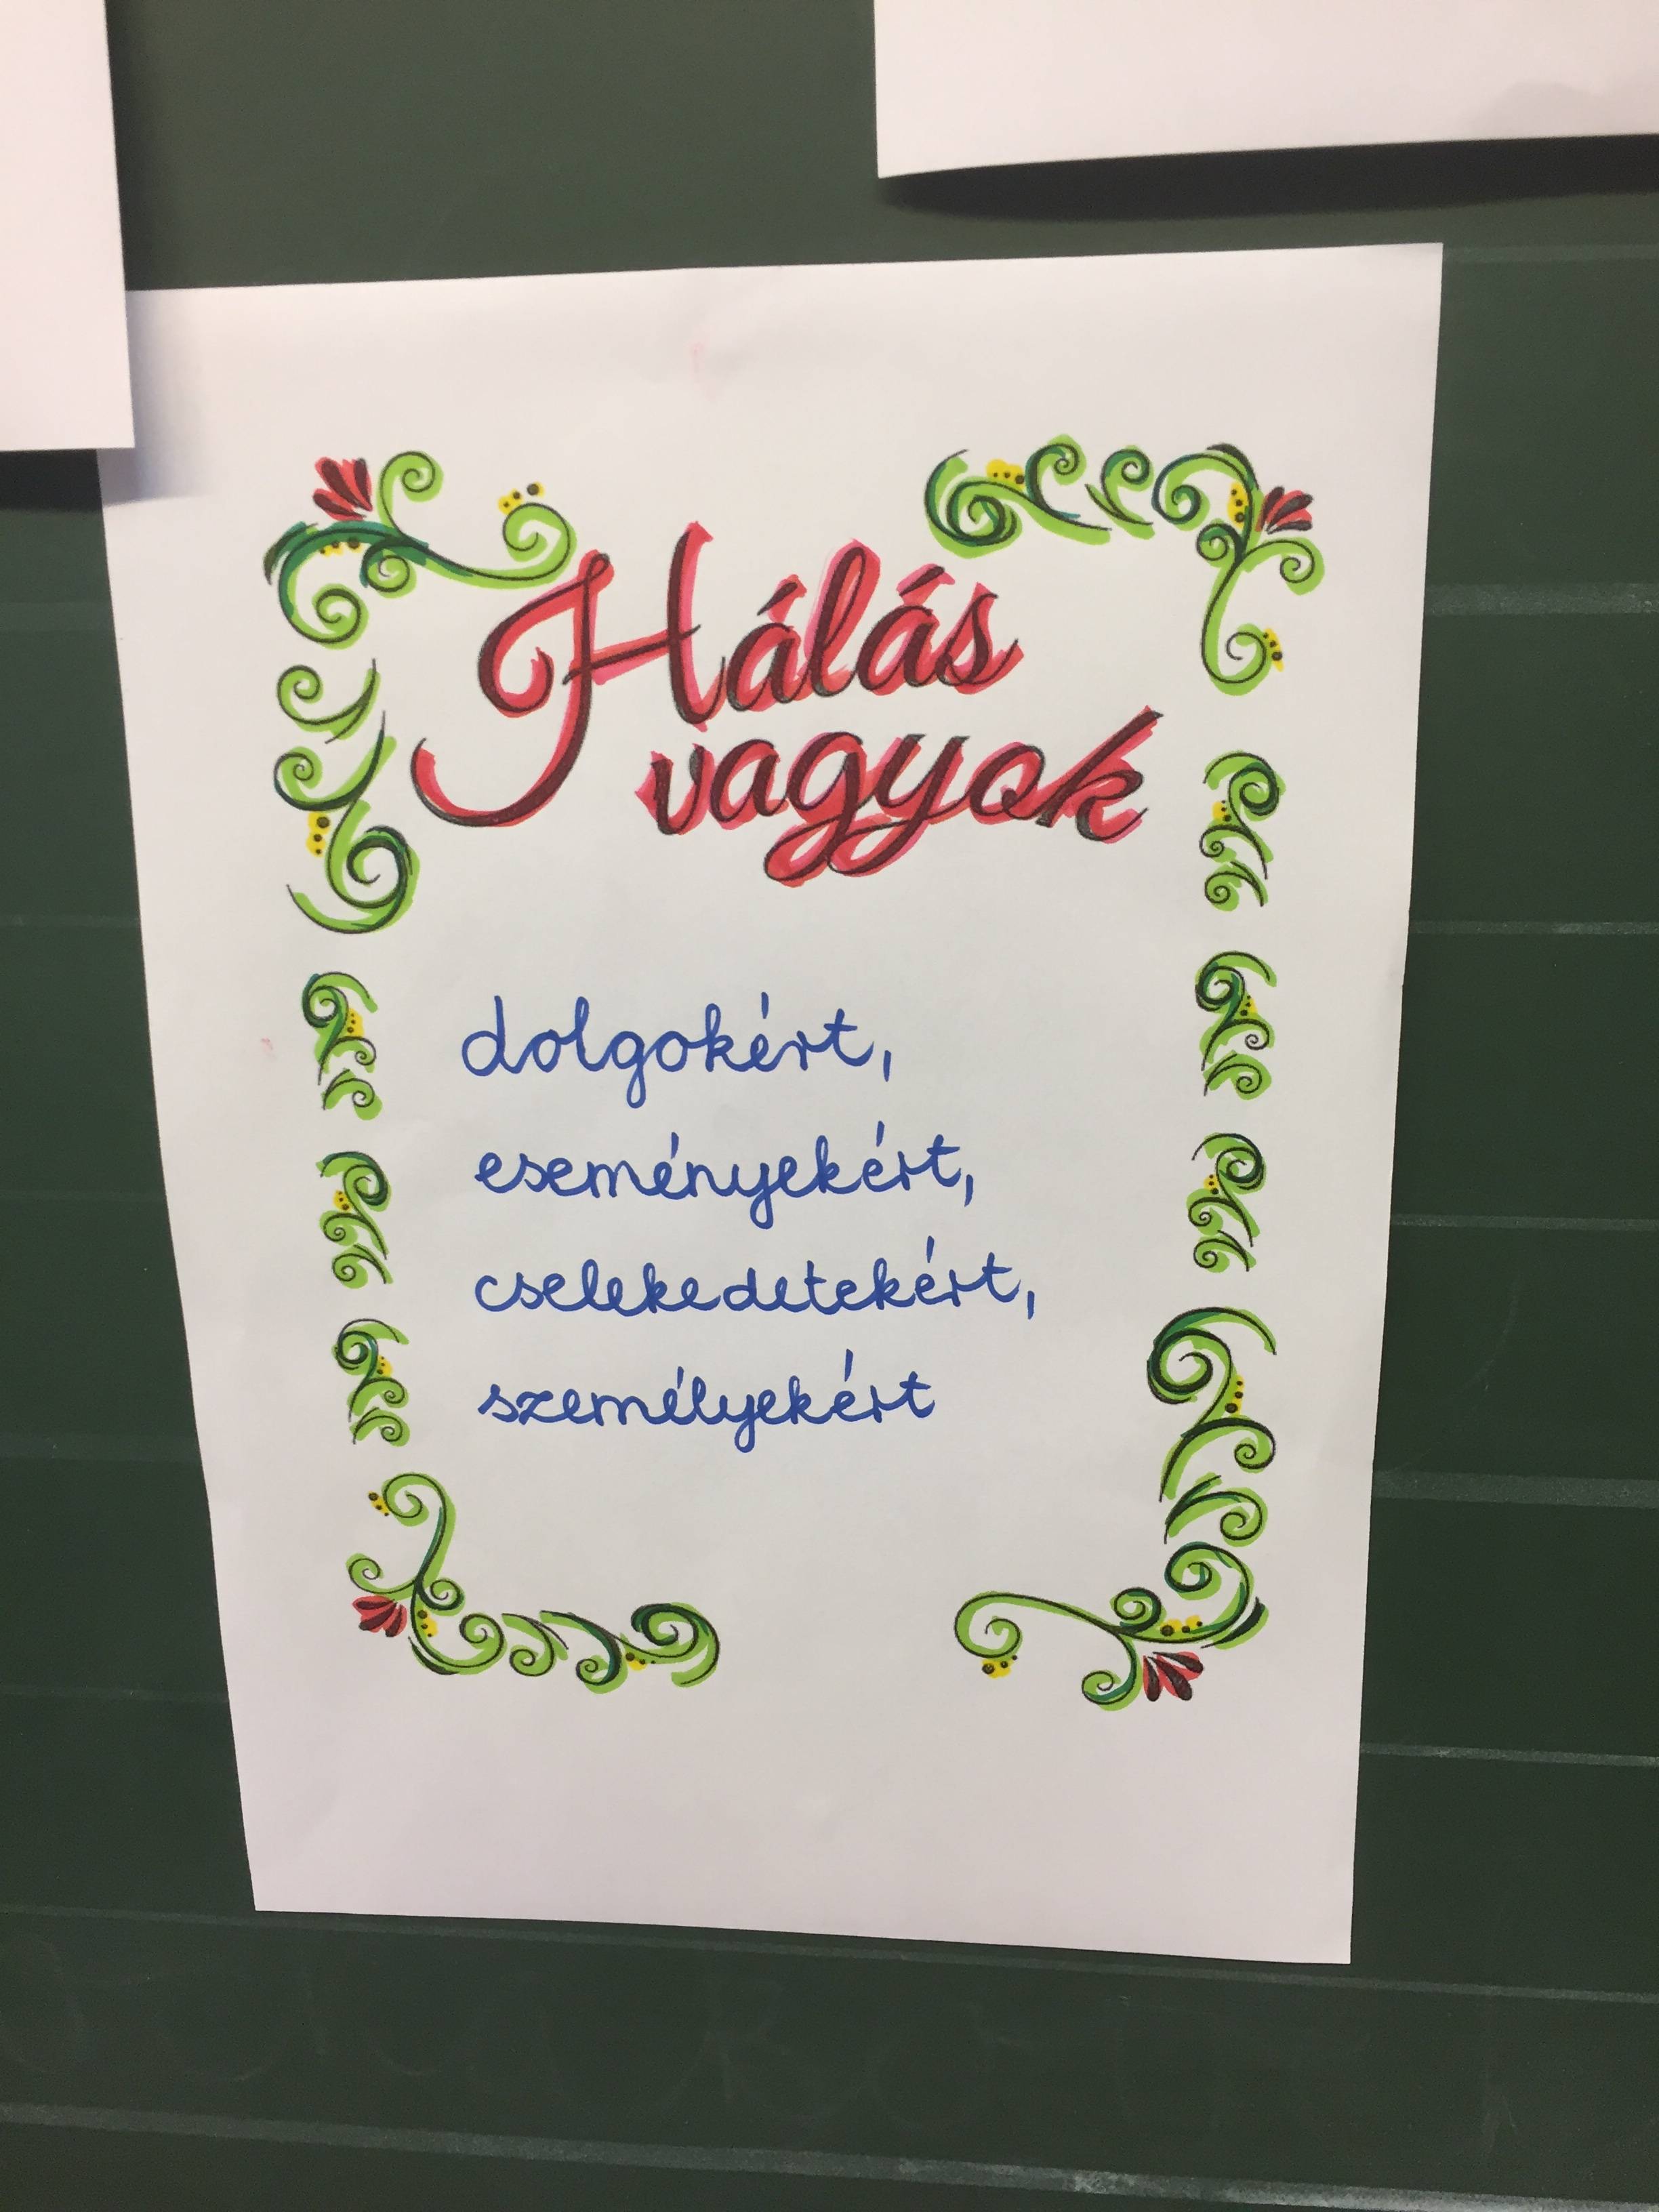 Hálás
vagyok
dolgokért,
eseményekért,
cselekedetekért,
személyekért